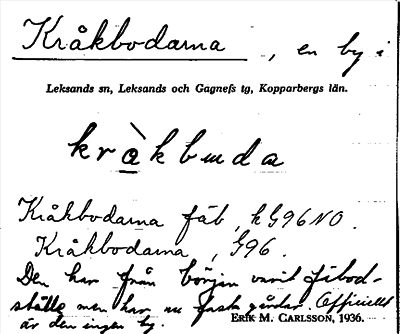 Kråkbodarna, en by i
Leksands sn, Leksands och Gagnefs tg, Kopparbergs län.
kràkbuda
Kråkbodarna fäb, hG96NO.
Kråkbodarna, G96.
Den har från början varit fäbod-
ställe men har nu fasta gårdar. Officiellt
är den ingen by.
ERIK M. CARLSSON, 1936.